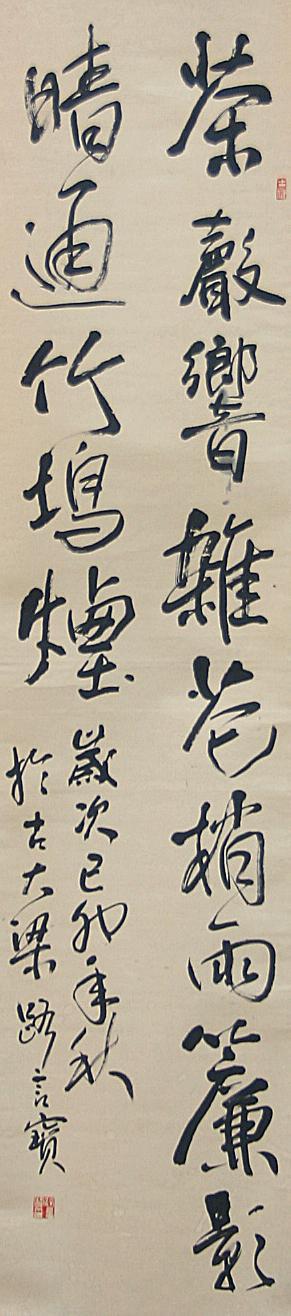 茶聲響雜花梢雨簾影
晴通竹塢煙
歲次己卯年秋
於古大梁路言寶